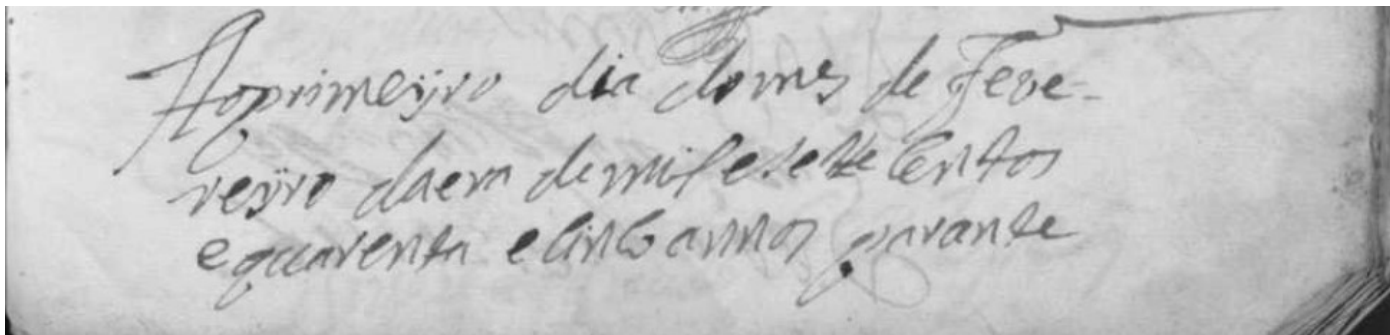 Aoprimeyro dia domes de Feve-
reyro daera demil e sete Centos
e quarenta e Cinco annos parante